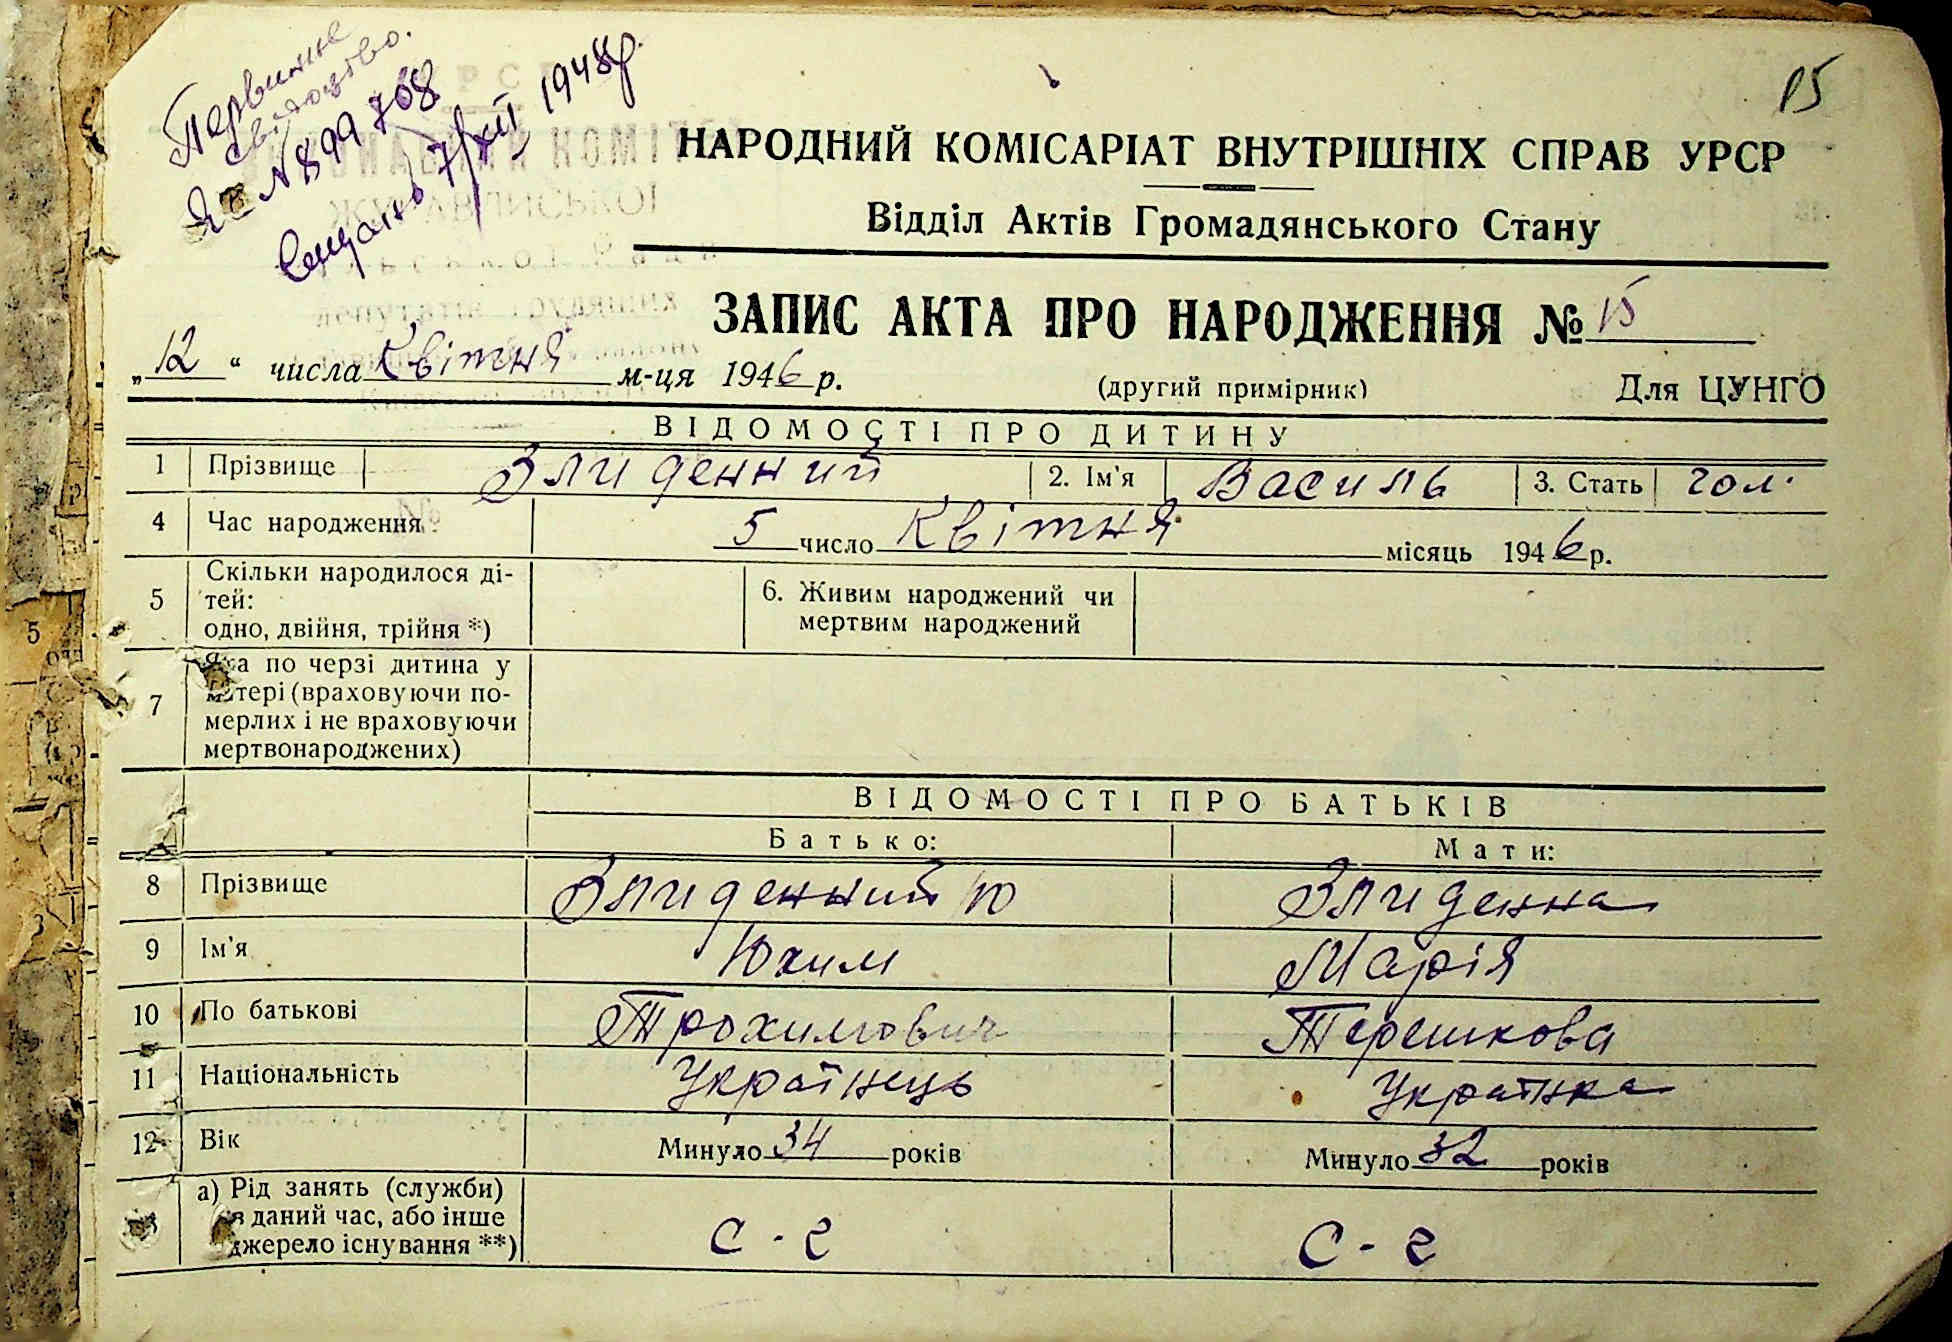 Первинне
свідоцтво.
Яе № 899768
видано 7/XII 1948р.
15
НАРОДНИЙ КОМІСАРІАТ ВНУТРІШНІХ СПРАВ УРСР
Відділ Актів Громадянського Стану
ЗАПИС АКТА ПРО НАРОДЖЕННЯ № 15
„12“ числа Квітня м-ця 1946 р. (другий примірник) Для ЦУНГО
ВІДОМОСТІ ПРО ДИТИНУ
1 Прізвище Злиденний 2. Ім'я Василь 3. Стать чол.
4 Час народження 5 число Квітня місяць 1946 р.
5 Скільки народилося ді-
тей:
одно, двійня, трійня *) 6. Живим народжений чи
мертвим народжений
7 Яка по черзі дитина у
матері (враховуючи по-
мерлих і не враховуючи
мертвонароджених)
ВІДОМОСТІ ПРО БАТЬКІВ
Батько: Мати:
8 Прізвище Злиденний Ю Злиденна
9 Ім'я Юхим Марія
10 По батькові Трохимович Терешкова
11 Національність Українець Українка
12 Вік Минуло 34 років Минуло 32 років
а) Рід занять (служби)
в даний час, або інше
джерело існування **) с-г с-г